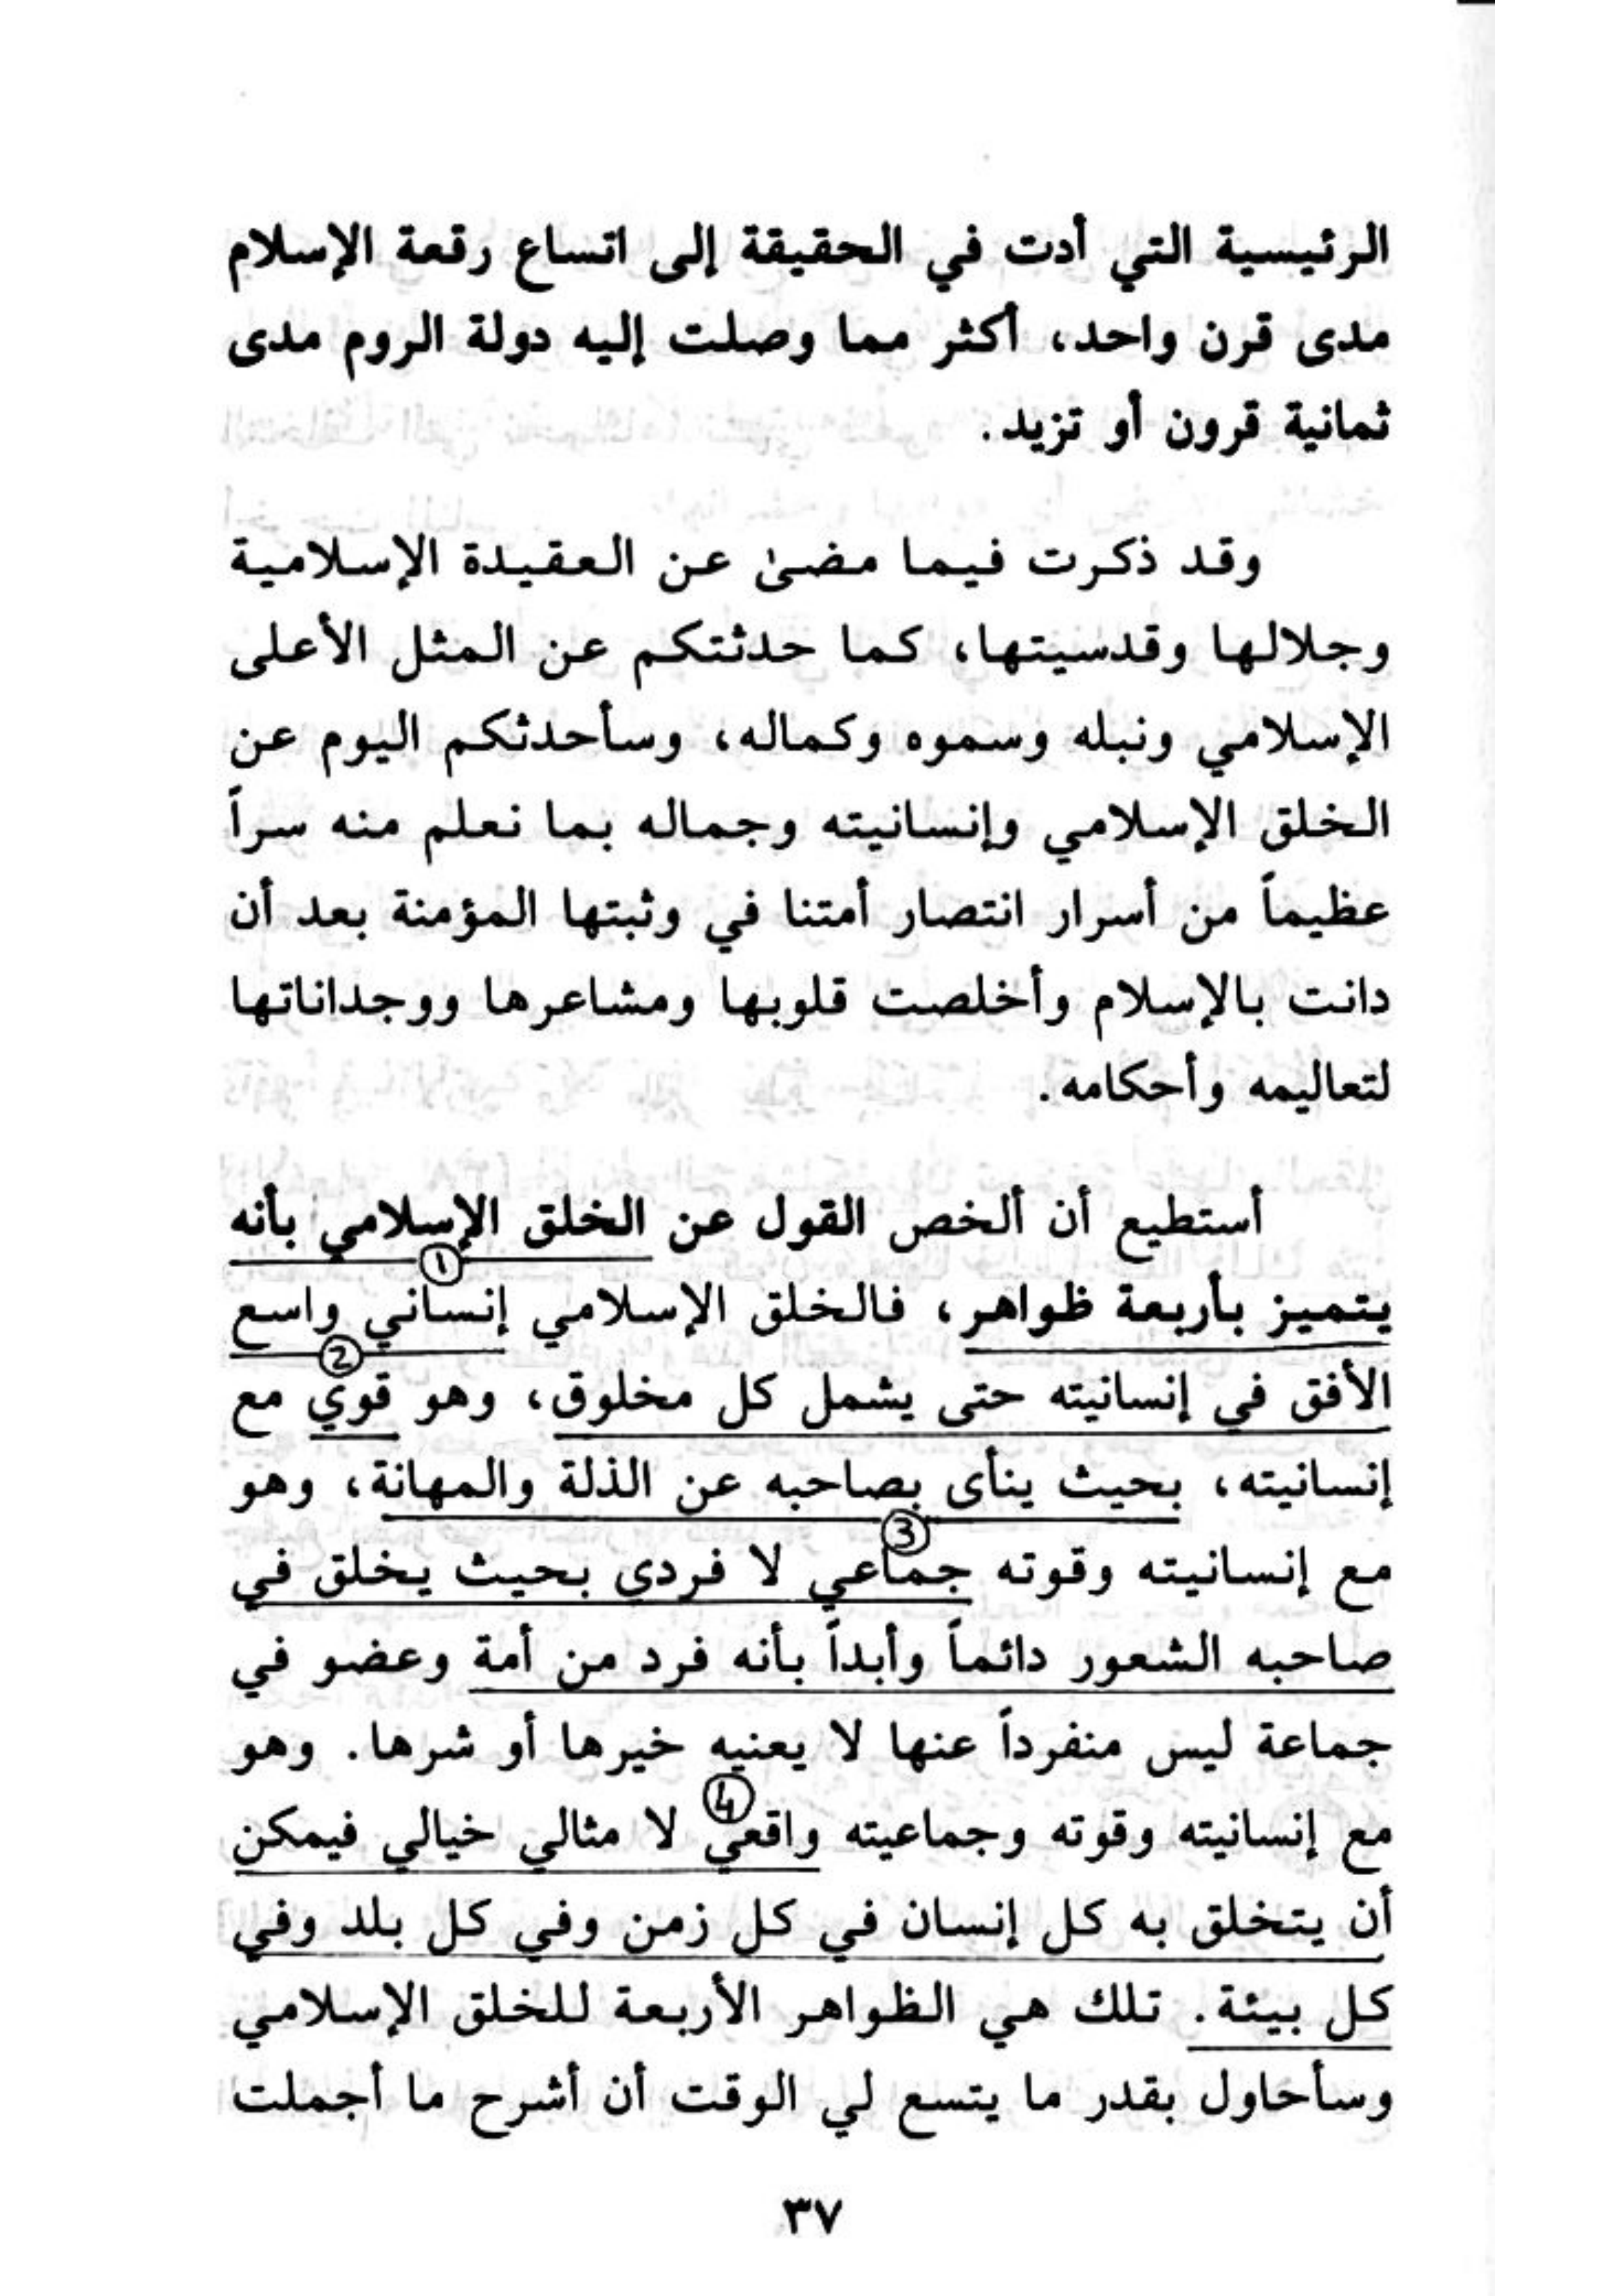 الرئيسية التي أدت في الحقيقة إلى اتساع رقعة الإسلام
مدى قرن واحد، أكثر مما وصلت إليه دولة الروم مدى
ثمانية قرون أو تزيد.
وقد ذكرت فيما مضىٰ عن العقيدة الإسلامية
وجلالها وقدسيتها، كما حدثتكم عن المثل الأعلى
الإسلامي ونبله وسموه وكماله، وسأحدثكم اليوم عن
الخلق الإسلامي وإنسانيته وجماله بما نعلم منه سراً
عظيماً من أسرار انتصار أمتنا في وثبتها المؤمنة بعد أن
دانت بالإسلام وأخلصت قلوبها ومشاعرها ووجداناتها
لتعاليمه وأحكامه.
أستطيع أن ألخص القول عن الخلق الإسلامي بأنه
①
يتميز بأربعة ظواهر، فالخلق الإسلامي إنساني واسع
②
الأفق في إنسانيته حتى يشمل كل مخلوق، وهو قوي مع
إنسانيته، بحيث ينأى بصاحبه عن الذلة والمهانة، وهو
③
مع إنسانيته وقوته جماعي لا فردي بحيث يخلق في
صاحبه الشعور دائماً وأبداً بأنه فرد من أمة وعضو في
جماعة ليس منفرداً عنها لا يعنيه خيرها أو شرها. وهو
④
مع إنسانيته وقوته وجماعيته واقعي لا مثالي خيالي فيمكن
أن يتخلق به كل إنسان في كل زمن وفي كل بلد وفي
كل بيئة. تلك هي الظواهر الأربعة للخلق الإسلامي
وسأحاول بقدر ما يتسع لي الوقت أن أشرح ما أجملت
٣٧